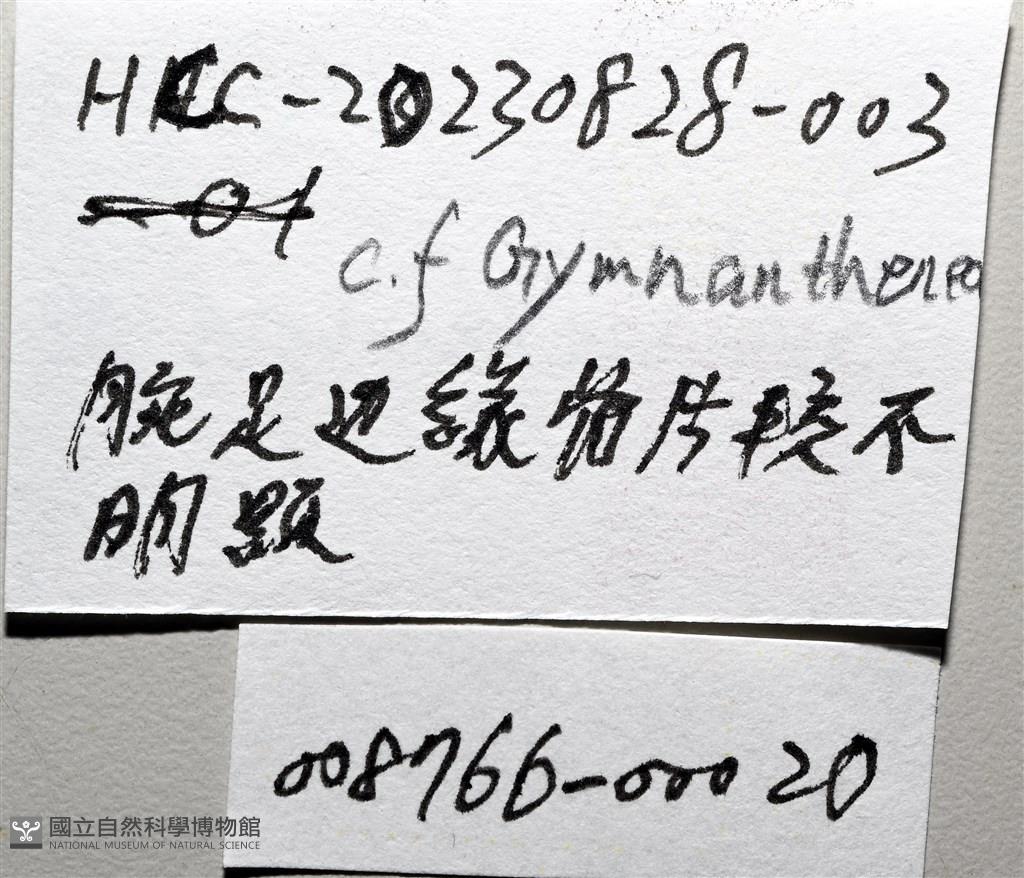 HCC-20230828-003
-01
c.f Gymnanthenea
腕足边緣骨片較不
明顯
008766-00020
國立自然科學博物館
NATIONAL MUSEUM OF NATURAL SCIENCE